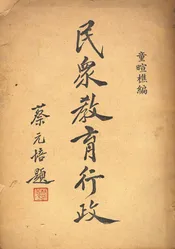 童暄樵編
民眾教育行政
蔡元培題